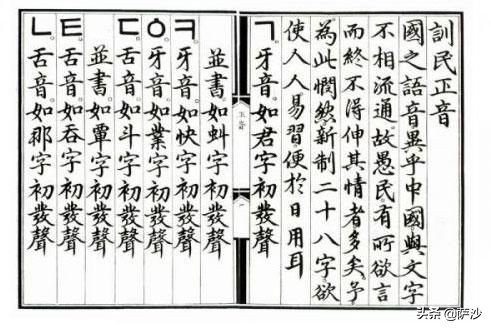 訓民正音
國之語音異乎中國與文字
不相流通。故愚民有所欲言
而終不得伸其情者多矣。予
為此憫然。新制二十八字。欲
使人人易習。便於日用耳
ㄱ。牙音。如君字初發聲
並書。如虯字初發聲
ㅋ。牙音。如快字初發聲
ㆁ。牙音。如業字初發聲
ㄷ。舌音。如斗字初發聲
並書。如覃字初發聲
ㅌ。舌音。如吞字初發聲
ㄴ。舌音。如那字初發聲
头条 @萨沙